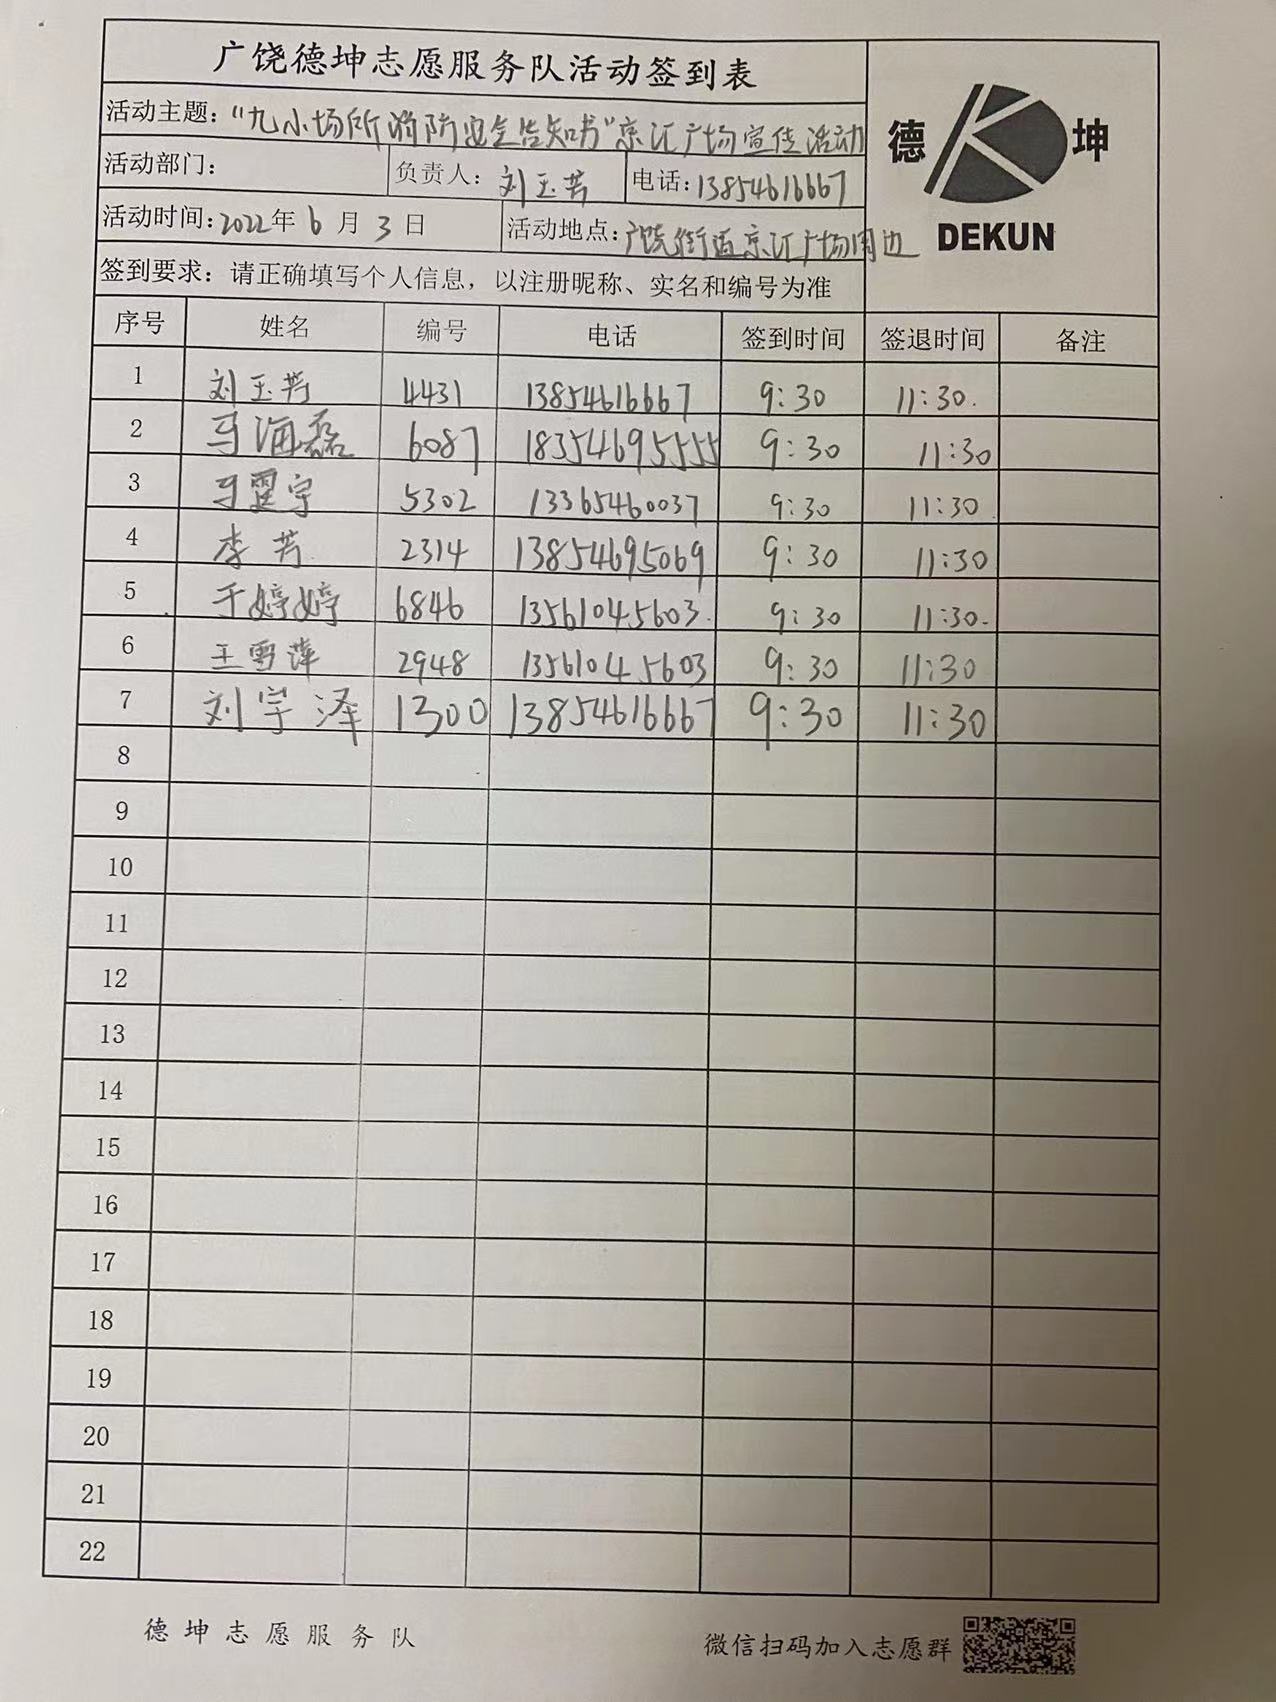 广饶德坤志愿服务队活动签到表
德 坤
DEKUN
活动主题："九小场所消防安全告知书"京汇广场宣传活动
活动部门： 负责人：刘玉芳 电话：13854616667
活动时间：2022年6月3日 活动地点：广饶街道京汇广场周边
签到要求：请正确填写个人信息，以注册昵称、实名和编号为准
序号 姓名 编号 电话 签到时间 签退时间 备注
1 刘玉芳 4431 13854616667 9:30 11:30.
2 马海磊 6087 18354695555 9:30 11:30
3 马霆宇 5302 13365460037 9:30 11:30
4 李芳 2314 13854695069 9:30 11:30
5 于婷婷 6846 13561045603. 9:30 11:30.
6 王雪萍 2948 13561045603 9:30 11:30
7 刘宇泽 1300 13854616667 9:30 11:30
8
9
10
11
12
13
14
15
16
17
18
19
20
21
22
德坤志愿服务队 微信扫码加入志愿群